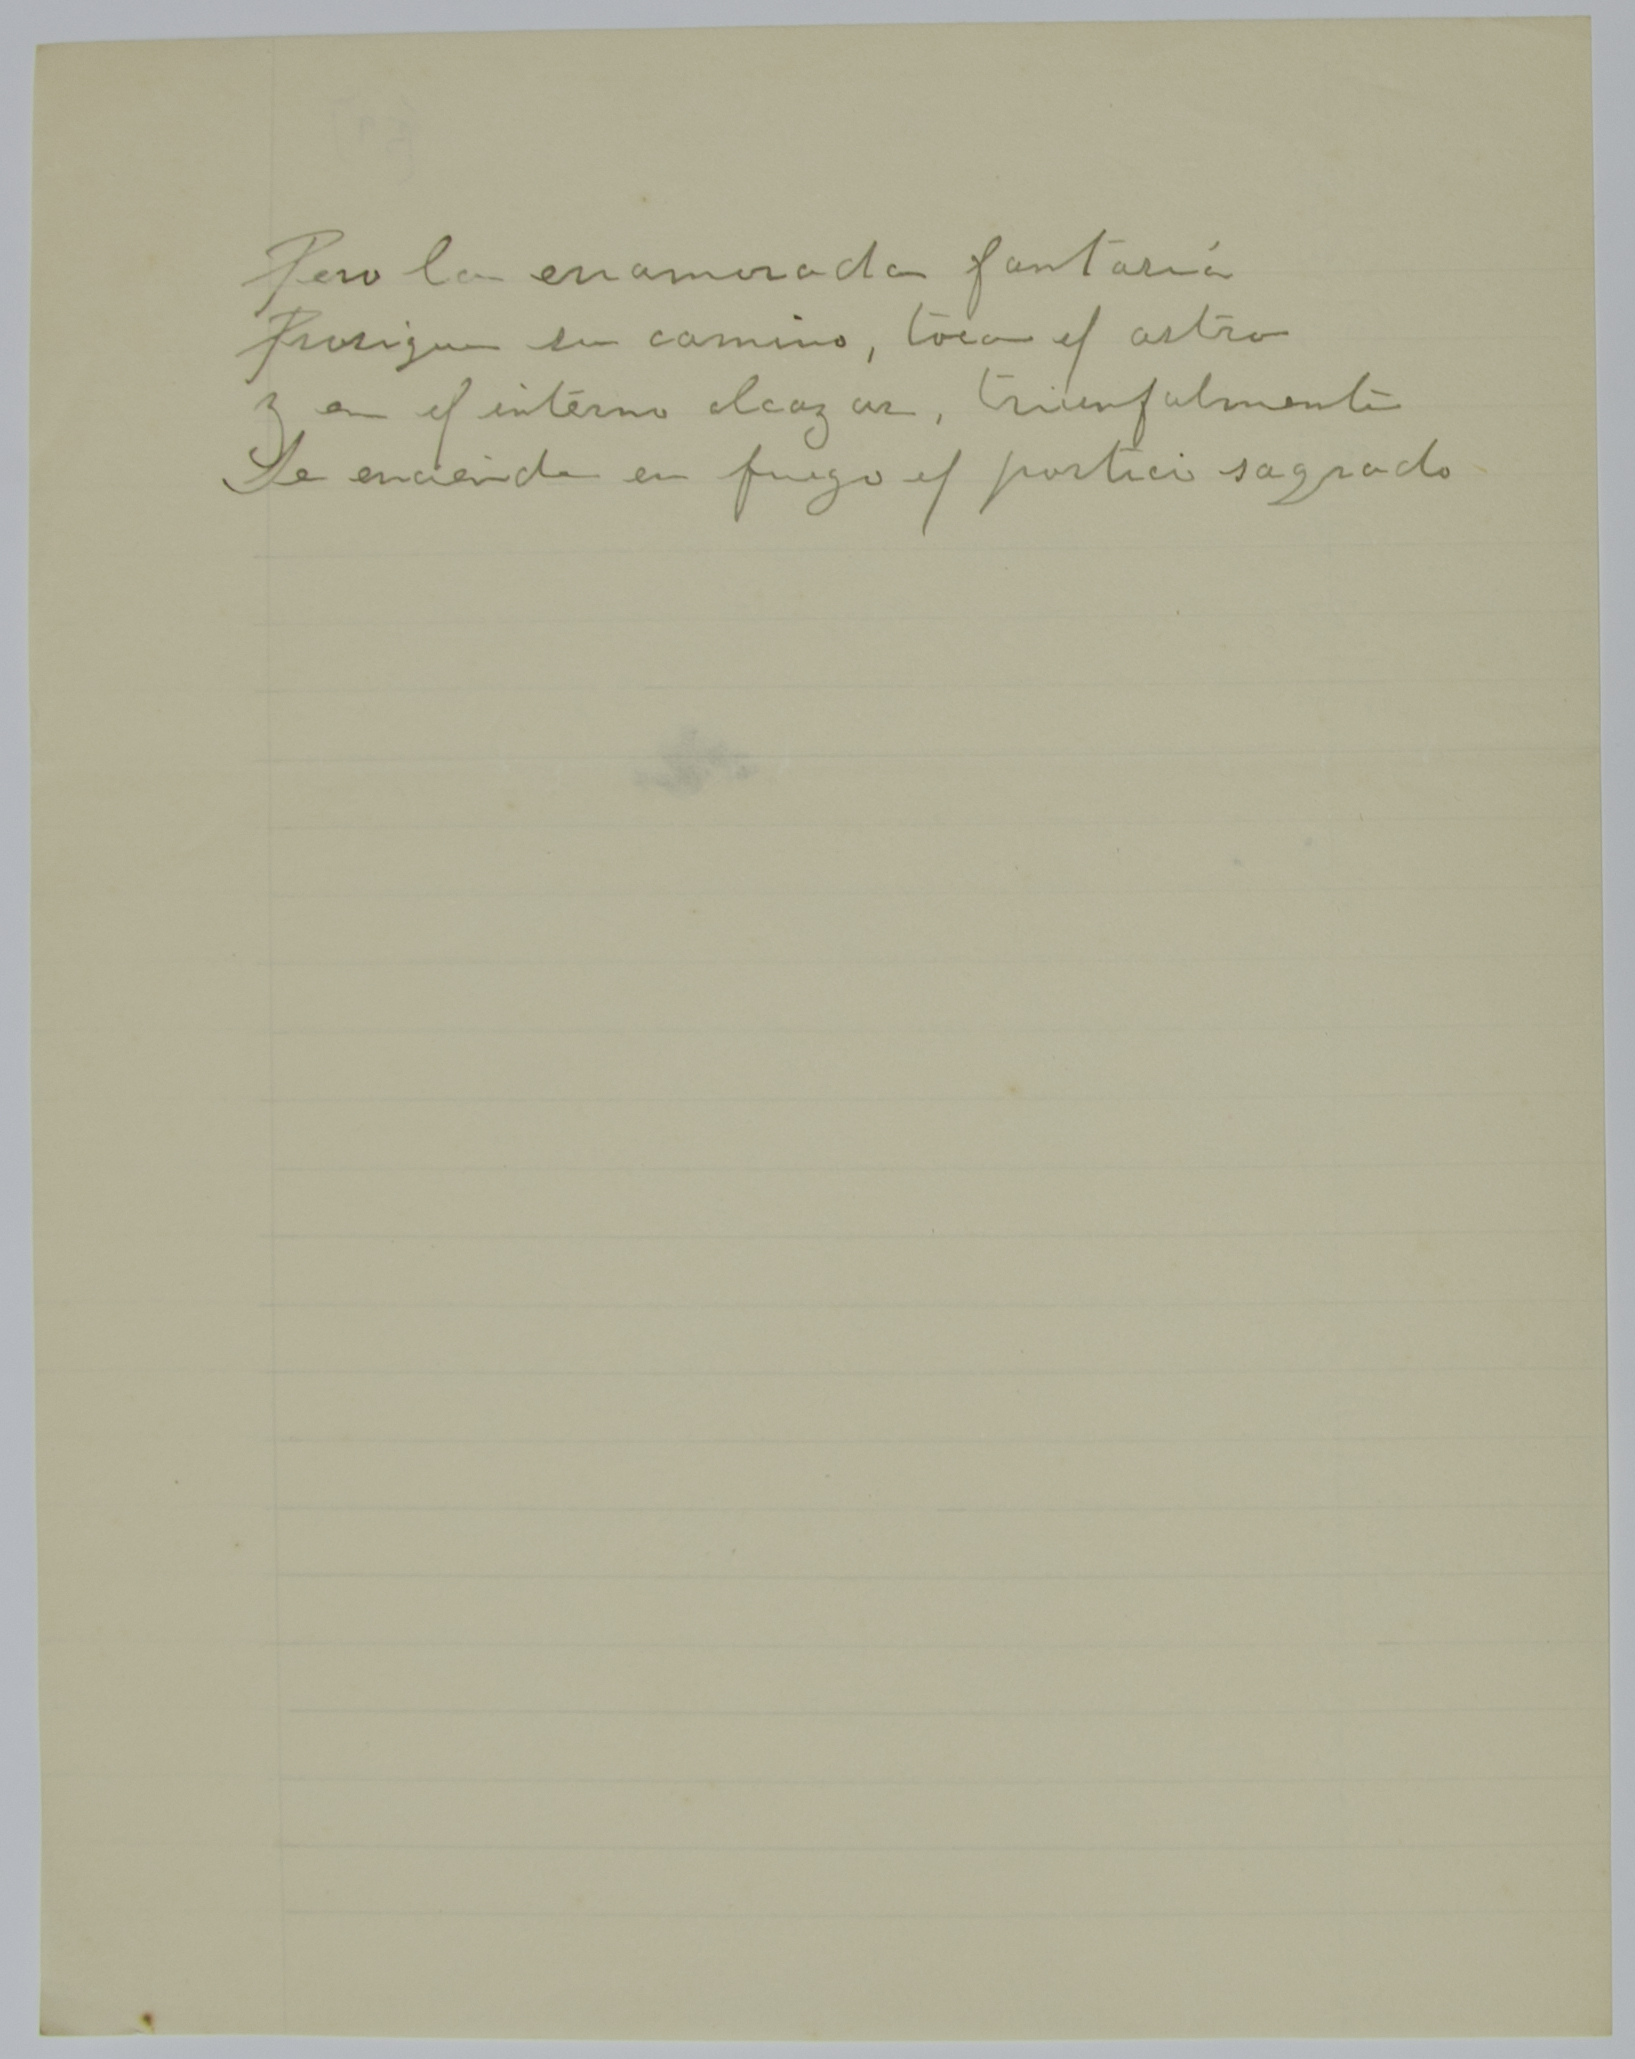 Pero la enamorada fantasía
Prosigue su camino, toca el astro
y en el interno alcazar, triunfalmente
Se enciende en fuego el portico sagrado